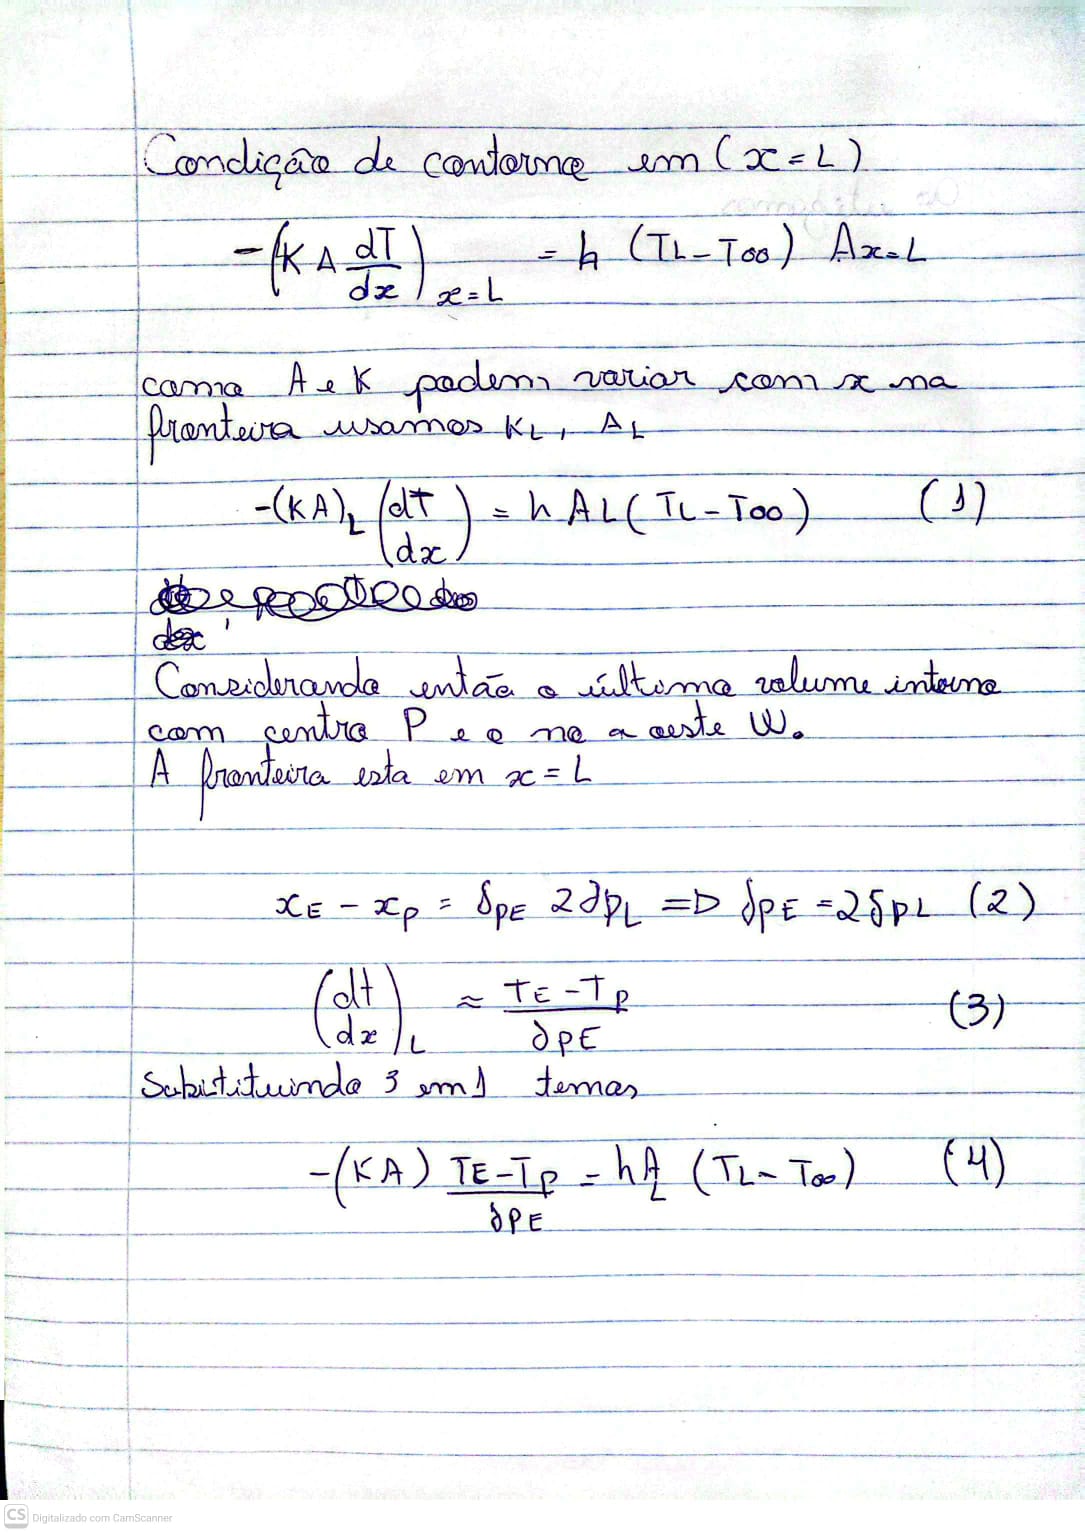 Condição de contorno em (x = L)
-(K A dT/dx) x=L = h (TL - T∞) Ax=L
como A e K podem variar com x na
fronteira usamos KL, AL
-(KA)L (dT/dx) = h AL (TL - T∞) (1)
Considerando então o último volume interno
com centro P e o no a oeste W.
A fronteira esta em x = L
xE - xP = δPE 2∂PL => δPE = 2δPL (2)
(dt/dx)L ≈ TE - TP / ∂PE (3)
Substituindo 3 em 1 temos
-(KA) TE - TP / ∂PE = hAL (TL - T∞) (4)
CS Digitalizado com CamScanner